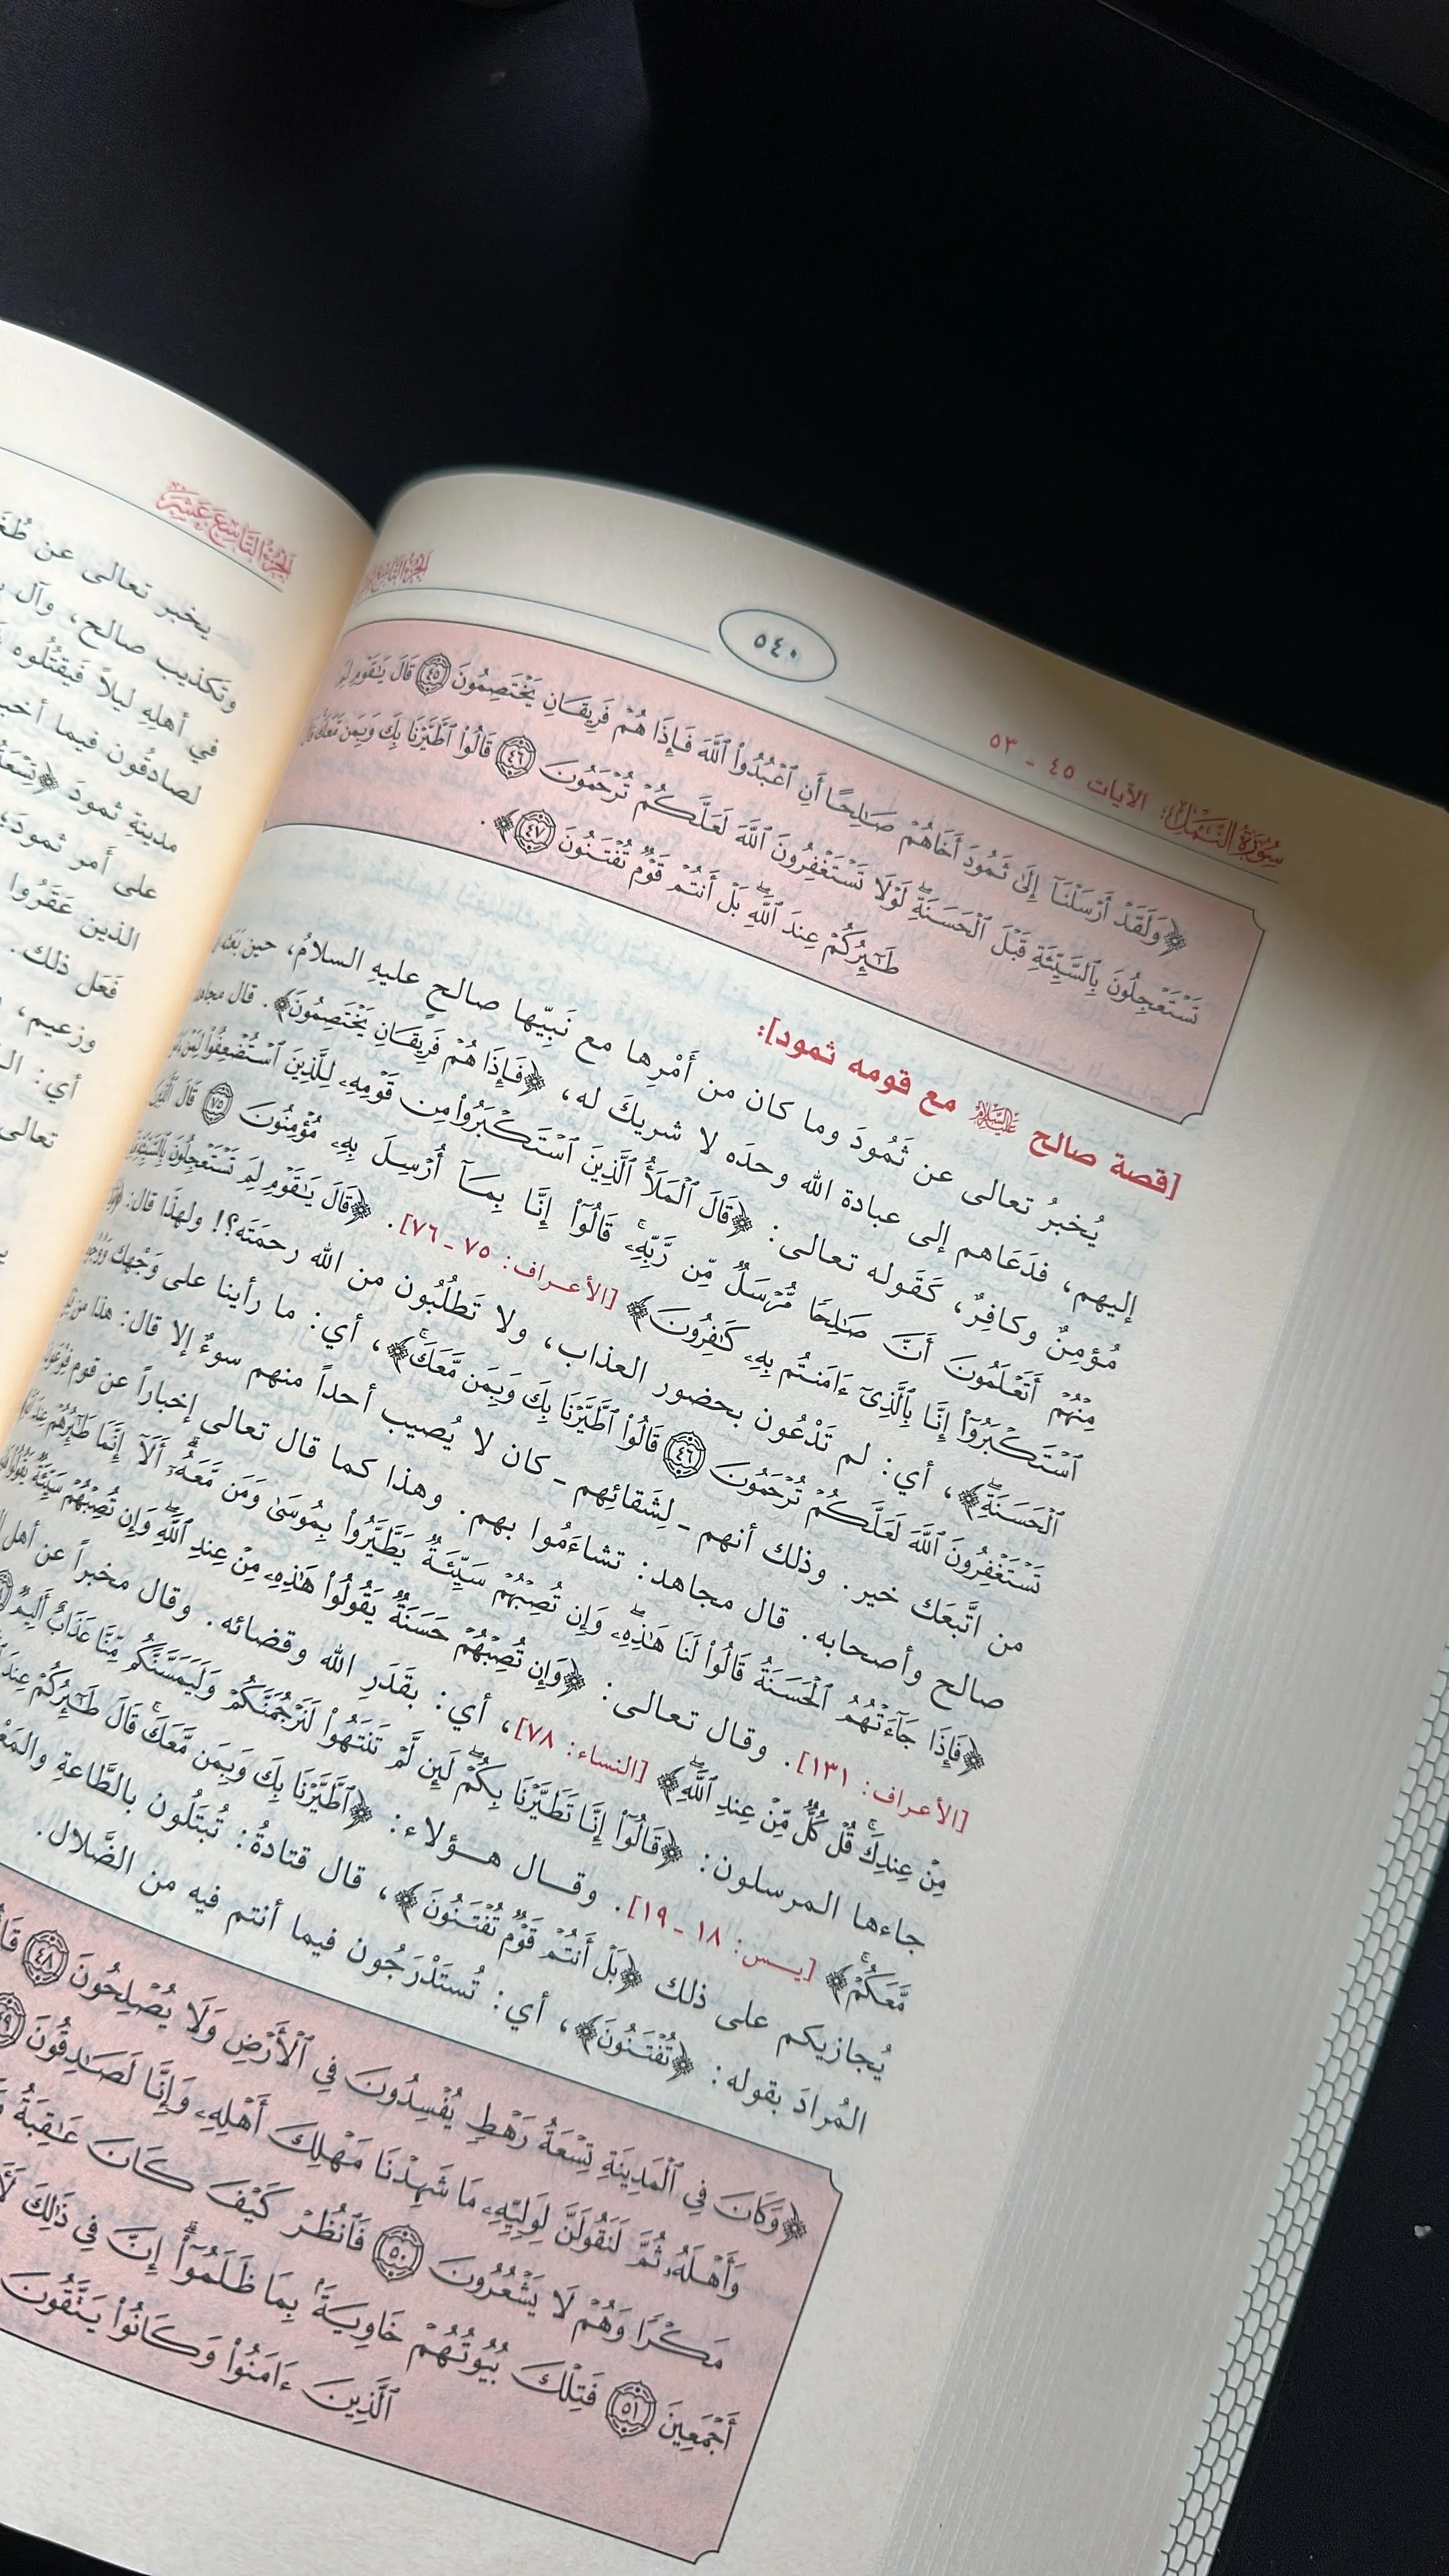 سُورَةُ النَّمْلِ: الآيات ٤٥ - ٥٣
٥٤٠
﴿وَلَقَدْ أَرْسَلْنَآ إِلَىٰ ثَمُودَ أَخَاهُمْ صَٰلِحًا أَنِ ٱعْبُدُوا۟ ٱللَّهَ فَإِذَا هُمْ فَرِيقَانِ يَخْتَصِمُونَ ٤٥ قَالَ يَٰقَوْمِ لِمَ
تَسْتَعْجِلُونَ بِٱلسَّيِّئَةِ قَبْلَ ٱلْحَسَنَةِ ۖ لَوْلَا تَسْتَغْفِرُونَ ٱللَّهَ لَعَلَّكُمْ تُرْحَمُونَ ٤٦ قَالُوا۟ ٱطَّيَّرْنَا بِكَ وَبِمَن مَّعَكَ ۚ قَالَ
طَٰٓئِرُكُمْ عِندَ ٱللَّهِ ۖ بَلْ أَنتُمْ قَوْمٌ تُفْتَنُونَ ٤٧﴾.
[قصة صالح عليه السلام مع قومه ثمود]:
يُخبرُ تعالى عن ثَمُودَ وما كان من أَمْرِها مع نَبِيِّها صالحٍ عليهِ السلامُ، حين بَعَثه
إليهم، فدَعَاهم إلى عبادة الله وحدَه لا شريكَ له، ﴿فَإِذَا هُمْ فَرِيقَانِ يَخْتَصِمُونَ﴾. قال مجاهد
مُؤمِنٌ وكافِرٌ، كَقَوله تعالى: ﴿قَالَ ٱلْمَلَأُ ٱلَّذِينَ ٱسْتَكْبَرُوا۟ مِن قَوْمِهِۦ لِلَّذِينَ ٱسْتُضْعِفُوا۟ لِمَنْ
مِنْهُمْ أَتَعْلَمُونَ أَنَّ صَٰلِحًا مُّرْسَلٌ مِّن رَّبِّهِۦ ۚ قَالُوٓا۟ إِنَّا بِمَآ أُرْسِلَ بِهِۦ مُؤْمِنُونَ ٧٥ قَالَ ٱلَّذِينَ
ٱسْتَكْبَرُوٓا۟ إِنَّا بِٱلَّذِىٓ ءَامَنتُم بِهِۦ كَٰفِرُونَ﴾ [الأعراف: ٧٥ - ٧٦]. ﴿قَالَ يَٰقَوْمِ لِمَ تَسْتَعْجِلُونَ بِٱلسَّيِّئَةِ
ٱلْحَسَنَةِ﴾، أي: لم تَدْعُون بحضور العذاب، ولا تَطلُبُون من الله رحمَتَه؟! ولهذَا قال:
تَسْتَغْفِرُونَ ٱللَّهَ لَعَلَّكُمْ تُرْحَمُونَ ٤٦ قَالُوا۟ ٱطَّيَّرْنَا بِكَ وَبِمَن مَّعَكَ ۚ﴾، أي: ما رأينا على وَجْهِك
من اتَّبعَك خير. وذلك أنهم - لِشَقائِهم - كان لا يُصيب أحداً منهم سوءٌ إلا قال: هذا من
صالح وأصحابه. قال مجاهد: تشاءَمُوا بهم. وهذا كما قال تعالى إخباراً عن قوم فِرْعَوْنَ
﴿فَإِذَا جَآءَتْهُمُ ٱلْحَسَنَةُ قَالُوا۟ لَنَا هَٰذِهِۦ ۖ وَإِن تُصِبْهُمْ سَيِّئَةٌ يَطَّيَّرُوا۟ بِمُوسَىٰ وَمَن مَّعَهُۥٓ ۗ أَلَآ إِنَّمَا طَٰٓئِرُهُمْ عِندَ
[الأعراف: ١٣١]. وقال تعالى: ﴿وَإِن تُصِبْهُمْ حَسَنَةٌ يَقُولُوا۟ هَٰذِهِۦ مِنْ عِندِ ٱللَّهِ ۖ وَإِن تُصِبْهُمْ سَيِّئَةٌ يَقُولُوا۟
مِنْ عِندِكَ ۚ قُلْ كُلٌّ مِّنْ عِندِ ٱللَّهِ ۖ﴾ [النساء: ٧٨]، أي: بقَدَرِ الله وقضائه. وقال مخبراً عن أهل
جاءها المرسلون: ﴿قَالُوٓا۟ إِنَّا تَطَيَّرْنَا بِكُمْ ۖ لَئِن لَّمْ تَنتَهُوا۟ لَنَرْجُمَنَّكُمْ وَلَيَمَسَّنَّكُم مِّنَّا عَذَابٌ أَلِيمٌ
مَّعَكُمْ ۚ﴾ [يس: ١٨ - ١٩]. وقال هؤلاء: ﴿ٱطَّيَّرْنَا بِكَ وَبِمَن مَّعَكَ ۚ قَالَ طَٰٓئِرُكُمْ عِندَ
يُجازيكم على ذلك ﴿بَلْ أَنتُمْ قَوْمٌ تُفْتَنُونَ﴾، قال قتادةُ: تُبتَلُون بالطَّاعةِ
المُرادَ بقوله: ﴿تُفْتَنُونَ﴾، أي: تُستَدْرَجُون فيما أنتم فيه من الضَّلال.
﴿وَكَانَ فِى ٱلْمَدِينَةِ تِسْعَةُ رَهْطٍ يُفْسِدُونَ فِى ٱلْأَرْضِ وَلَا يُصْلِحُونَ ٤٨
وَأَهْلَهُۥ ثُمَّ لَنَقُولَنَّ لِوَلِيِّهِۦ مَا شَهِدْنَا مَهْلِكَ أَهْلِهِۦ وَإِنَّا لَصَٰدِقُونَ ٤٩
مَكْرًا وَهُمْ لَا يَشْعُرُونَ ٥٠ فَٱنظُرْ كَيْفَ كَانَ عَٰقِبَةُ
أَجْمَعِينَ ٥١ فَتِلْكَ بُيُوتُهُمْ خَاوِيَةًۢ بِمَا ظَلَمُوٓا۟ ۗ إِنَّ فِى ذَٰلِكَ
ٱلَّذِينَ ءَامَنُوا۟ وَكَانُوا۟ يَتَّقُونَ
الجُزْءُ التَّاسِعَ عَشَرَ
يخبر تعالى عن
وتكذيب صالح، وآل
في أهلِهِ ليلاً فَيقتُلُوه
لصادقُون فيما
مدينةِ ثمودَ
على أمر ثمودَ؛
الذين عَقَرُوا
فَعَل ذلك.
وزعيم،
أي:
تعالى